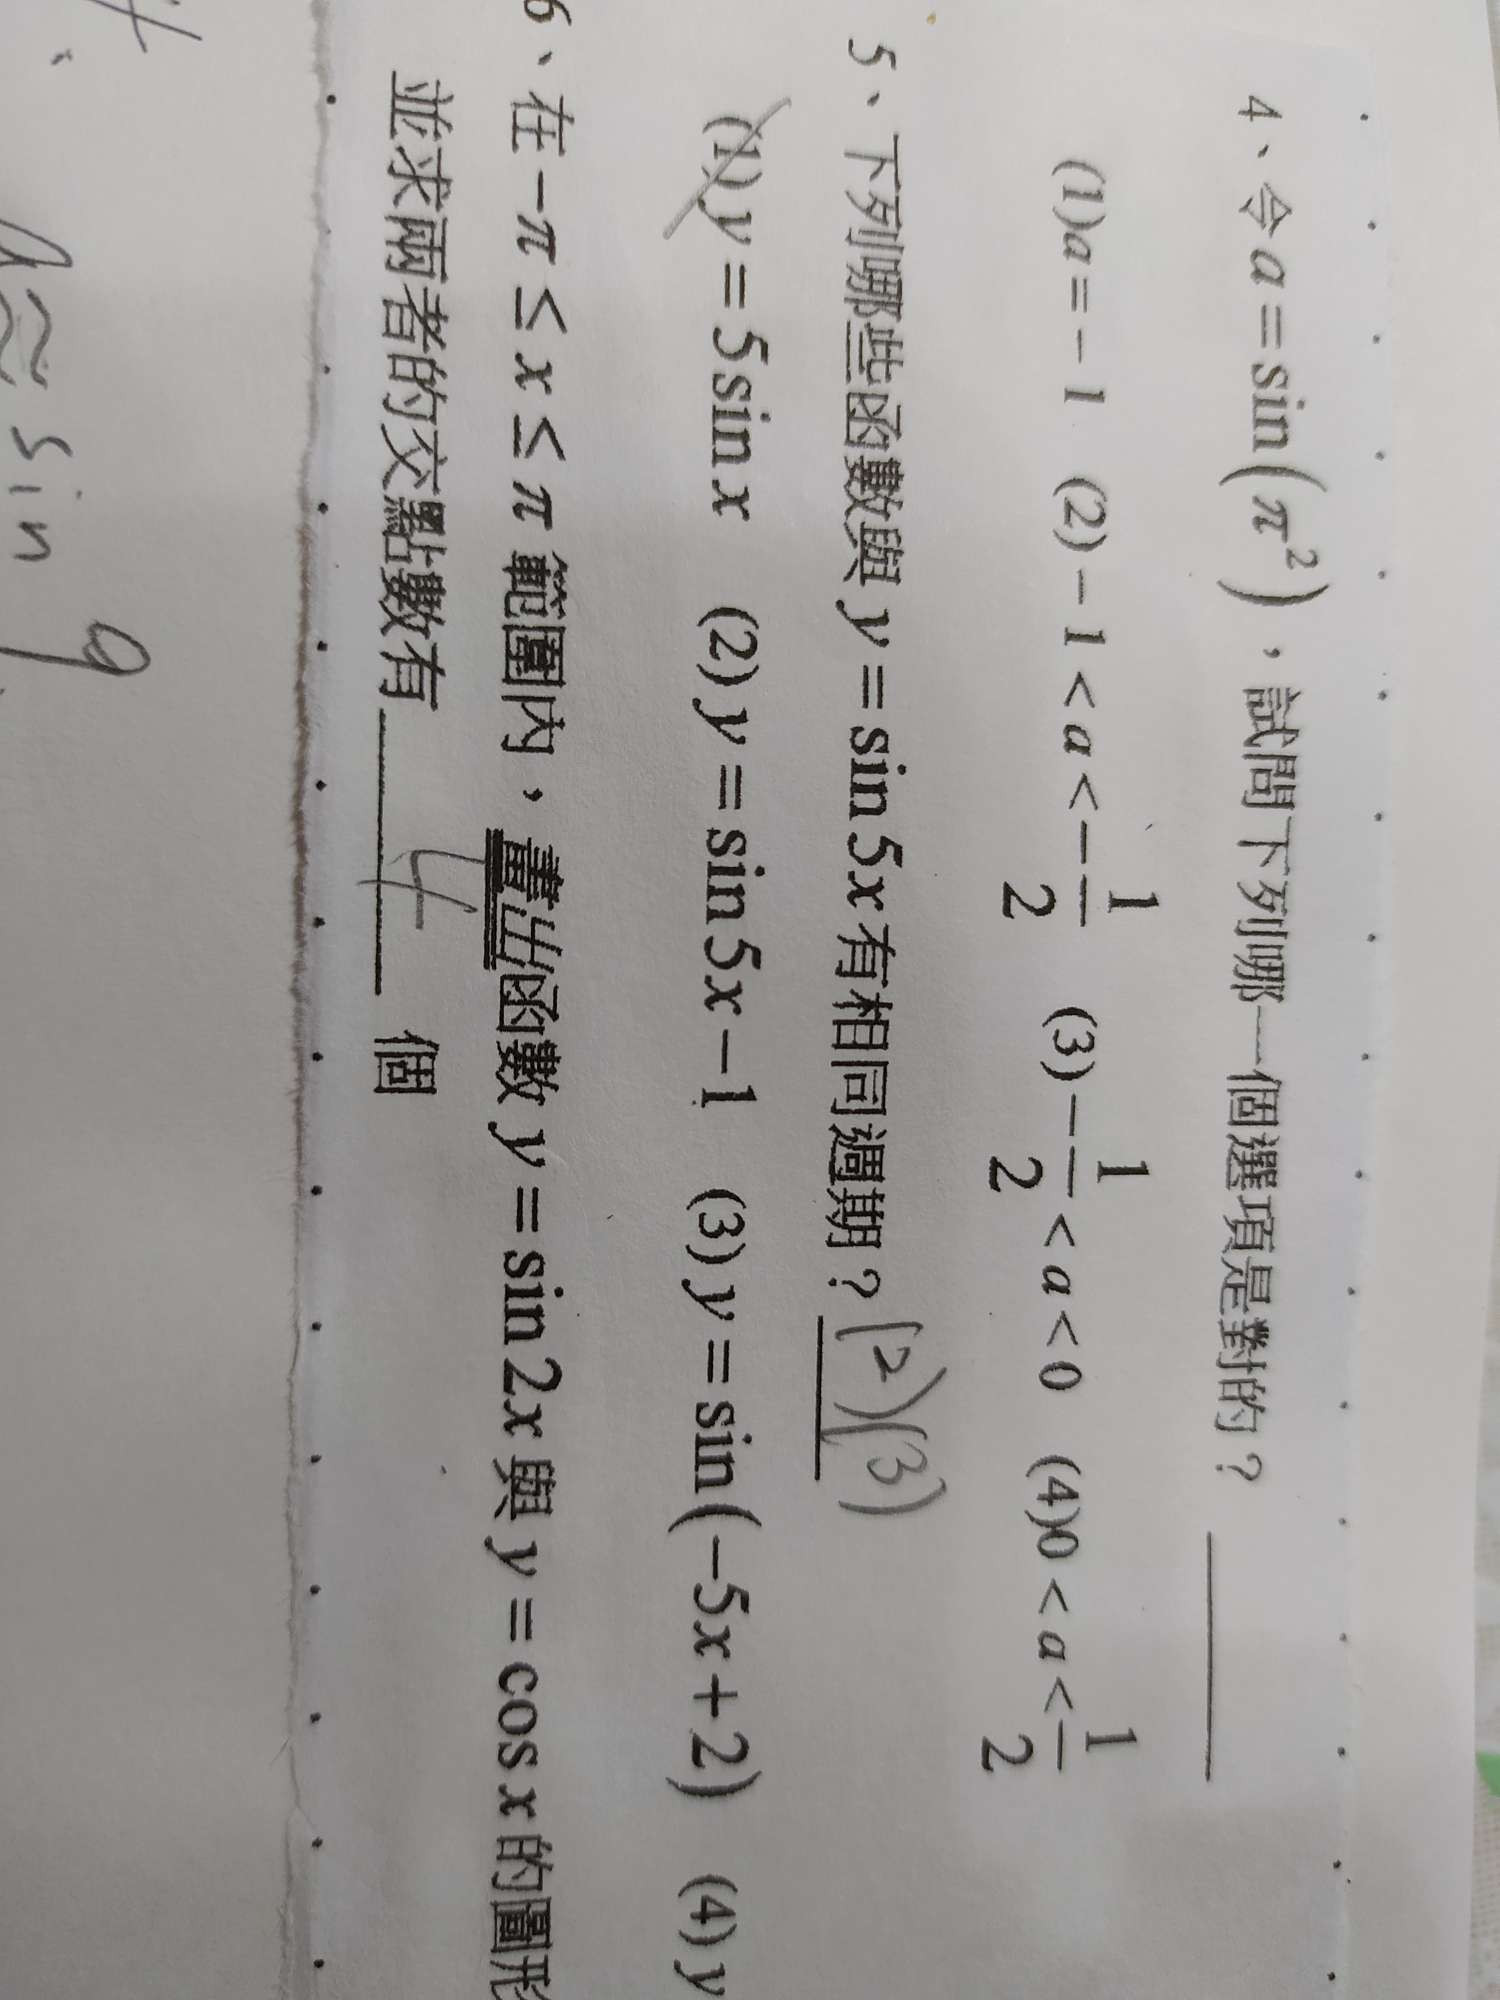 4、令 a = sin(π²)，試問下列哪一個選項是對的？
(1)a = −1 (2)−1 < a < −1/2 (3)−1/2 < a < 0 (4)0 < a < 1/2
5、下列哪些函數與 y = sin 5x 有相同週期？(2)(3)
(1)y = 5sin x (2)y = sin 5x − 1 (3)y = sin(−5x + 2) (4)y
6、在 −π ≤ x ≤ π 範圍內，畫出函數 y = sin 2x 與 y = cos x 的圖形
並求兩者的交點數有 4 個
sin 9